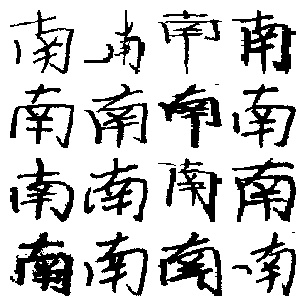 南南南南
南南南南
南南南南
南南南南